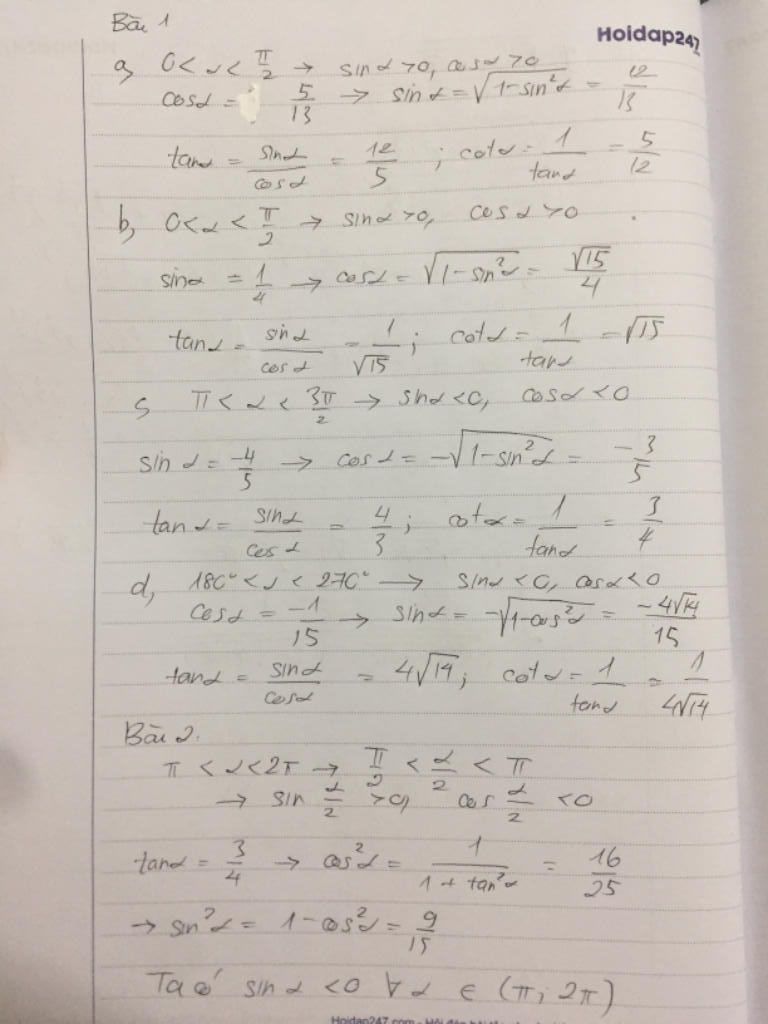 Bài 1
Hoidap247
a, 0 < α < π/2 → sinα > 0, cosα > 0
cosα = 5/13 → sinα = √(1-sin²α) = 12/13
tanα = sinα/cosα = 12/5 ; cotα = 1/tanα = 5/12
b, 0 < α < π/2 → sinα > 0, cosα > 0
sinα = 1/4 → cosα = √(1-sin²α) = √15/4
tanα = sinα/cosα = 1/√15 ; cotα = 1/tanα = √15
c, π < α < 3π/2 → sinα < 0, cosα < 0
sinα = -4/5 → cosα = -√(1-sin²α) = -3/5
tanα = sinα/cosα = 4/3 ; cotα = 1/tanα = 3/4
d, 180° < α < 270° → sinα < 0, cosα < 0
cosα = -1/15 → sinα = -√(1-cos²α) = -4√14/15
tanα = sinα/cosα = 4√14 ; cotα = 1/tanα = 1/4√14
Bài 2.
π < α < 2π → π/2 < α/2 < π
→ sin α/2 > 0, cos α/2 < 0
tanα = 3/4 → cos²α = 1/(1+tan²α) = 16/25
→ sin²α = 1-cos²α = 9/15
Ta có sinα < 0 ∀ α ∈ (π; 2π)